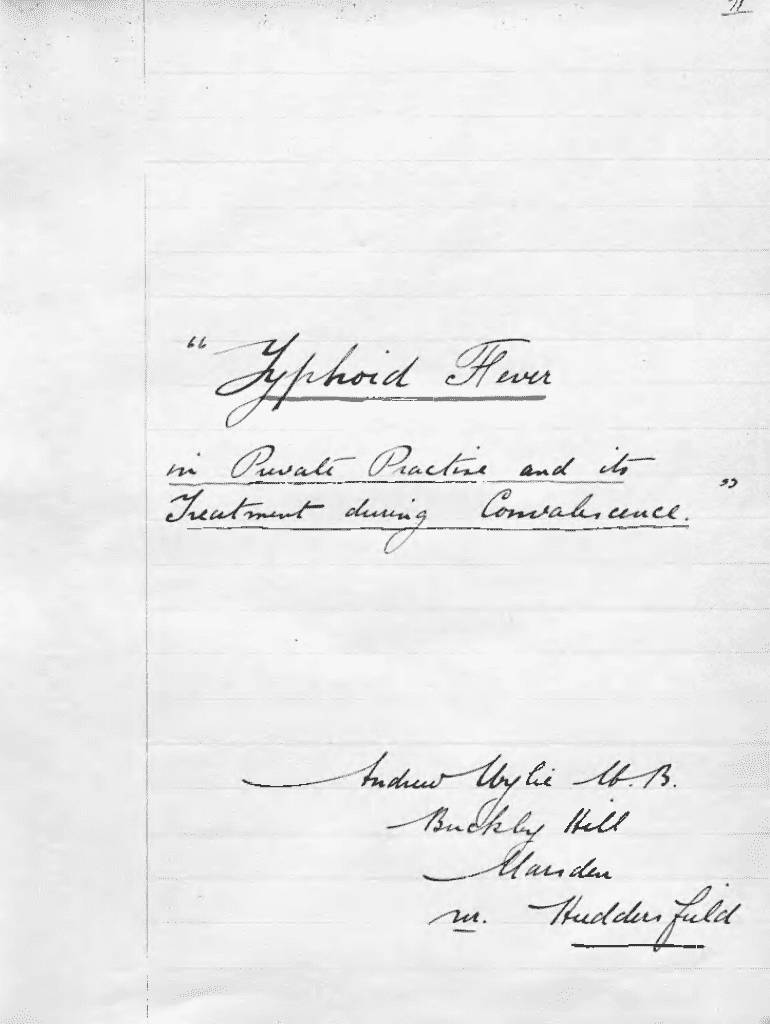 " Typhoid Fever
in Private Practise and its
Treatment during Convalescence. "
Andrew Wylie M.B.
Buckley Hill
Marsden
nr. Huddersfield